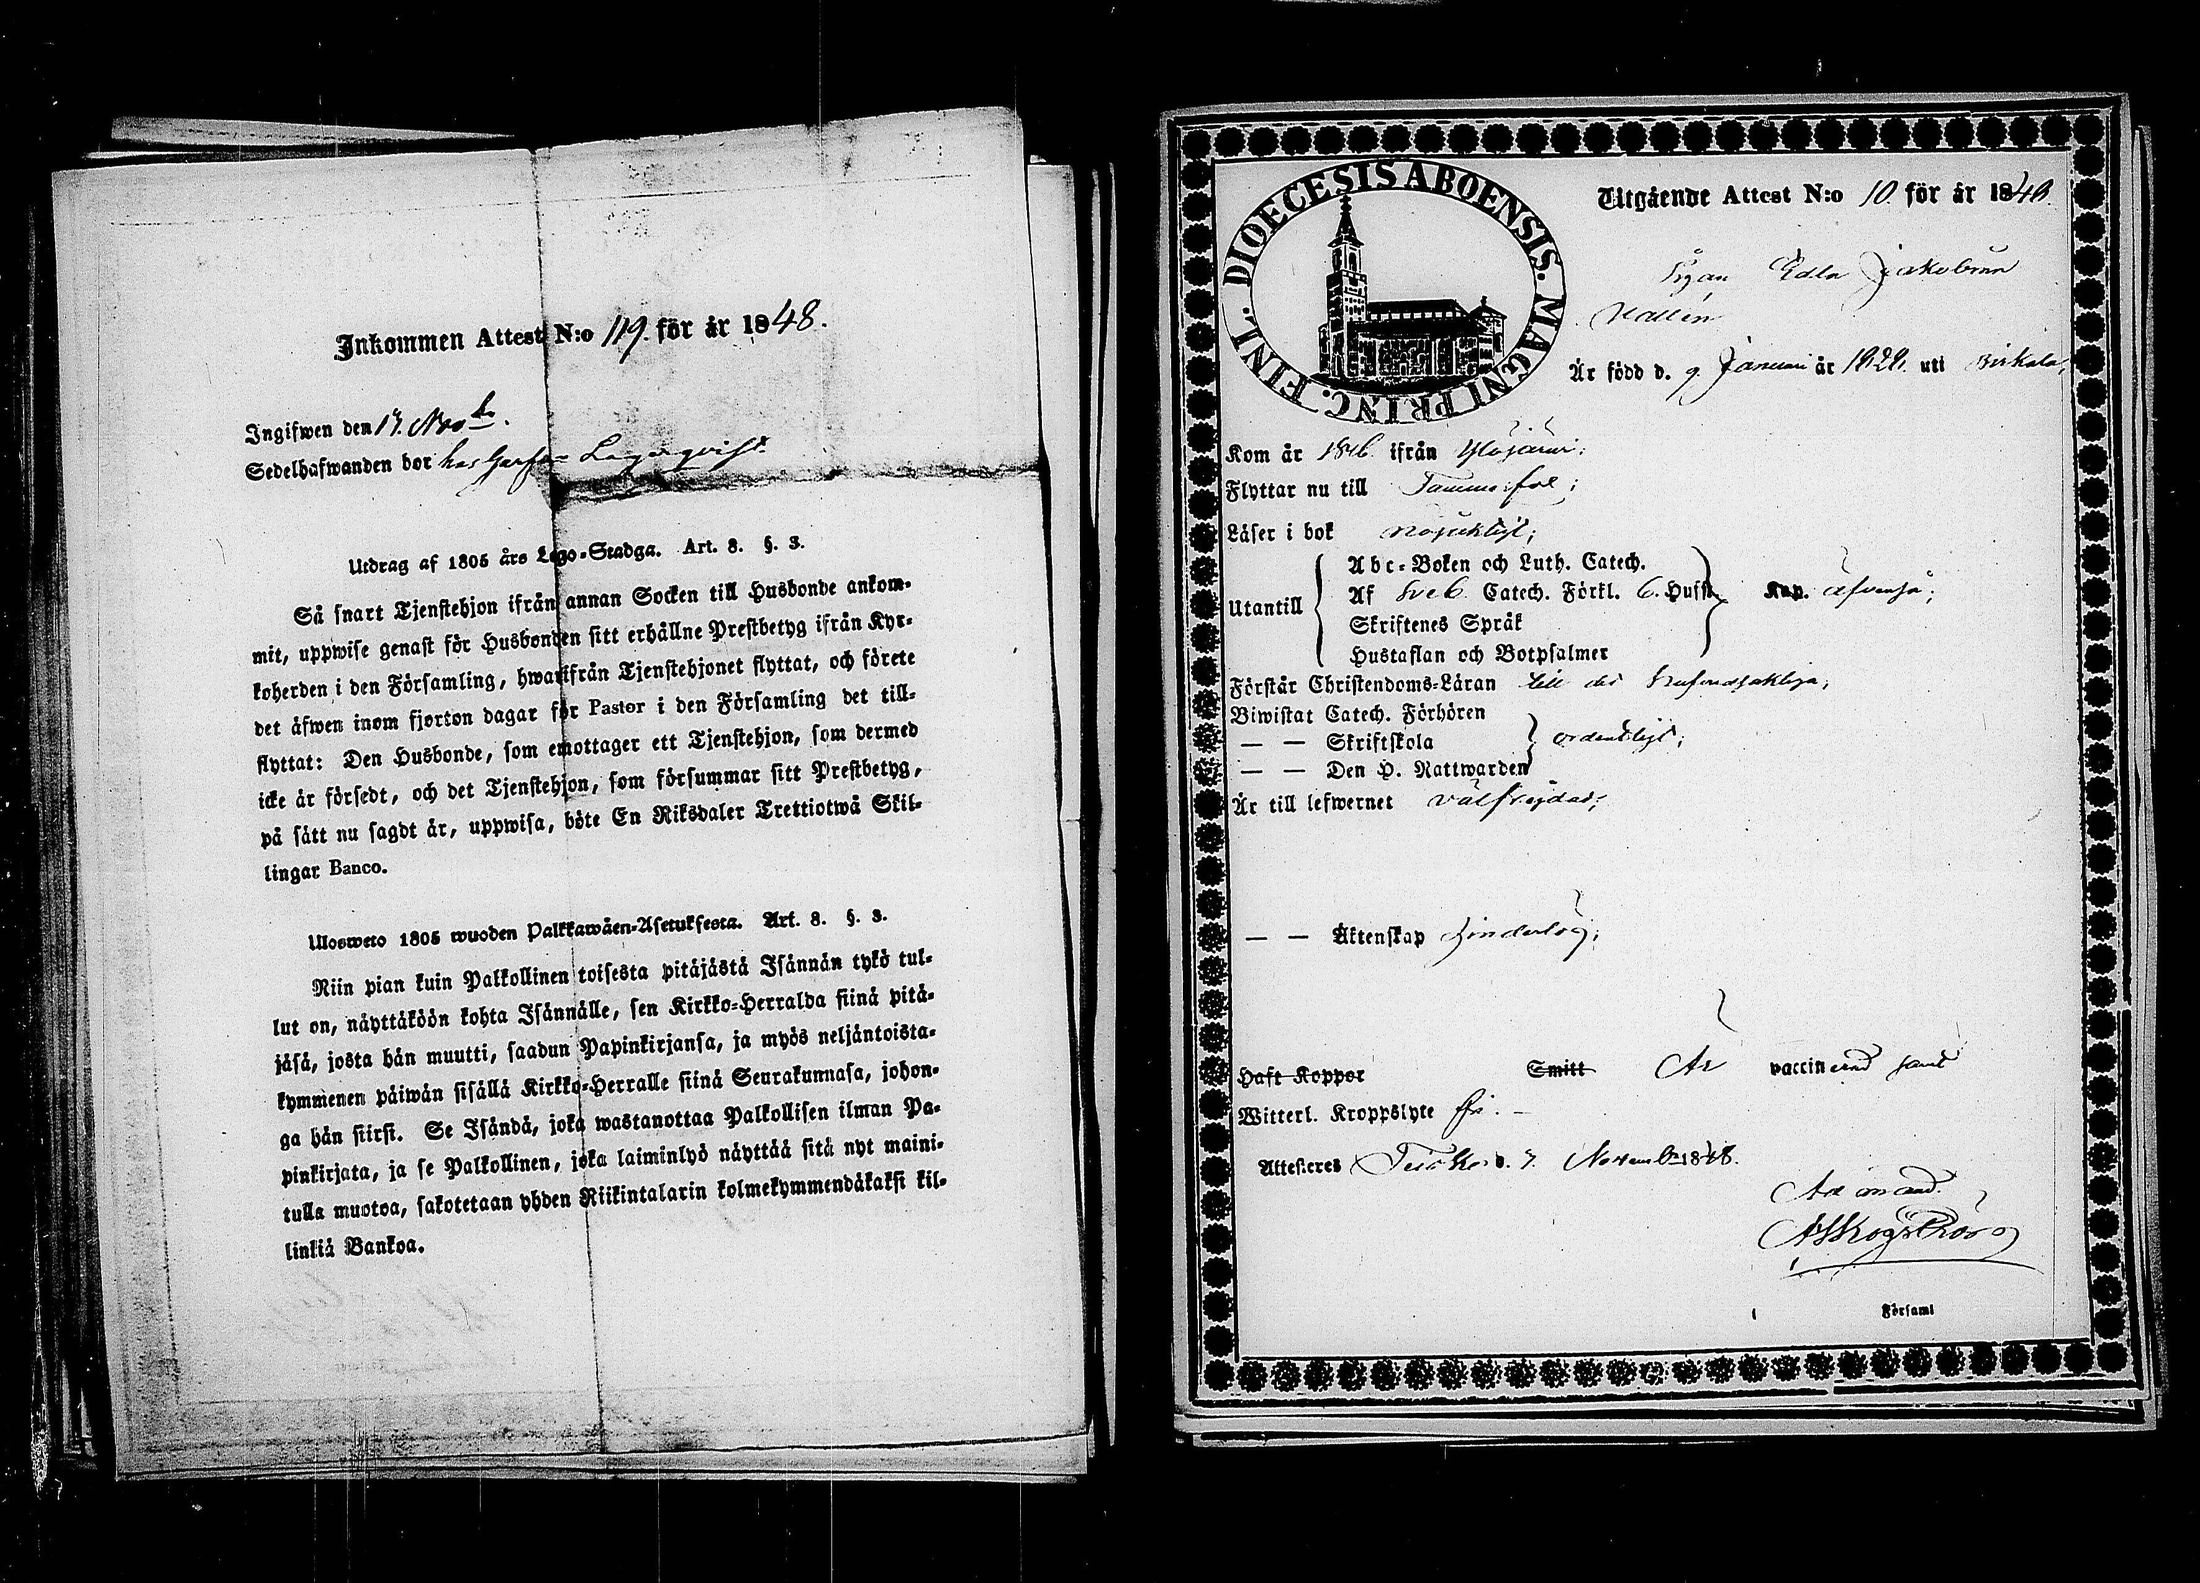 Inkommen Attest N:o 119. för år 1848.
Ingifwen den 17. Novbr.
Sedelhafwanden bor hos Garfv. Lagerqvist.
Utdrag af 1805 års Lego-Stadga. Art. 8. §. 3.
Så snart Tjenstehjon ifrån annan Socken till Husbonde ankom-
mit, uppwise genast för Husbonden sitt erhållne Prestbetyg ifrån Kyr-
koherden i den Församling, hwarifrån Tjenstehjonet flyttat, och förete
det äfwen inom fjorton dagar för Pastor i den Församling det till-
flyttat: Den Husbonde, som emottager ett Tjenstehjon, som dermed
icke är försedt, och det Tjenstehjon, som försummar sitt Prestbetyg,
på sätt nu sagdt är, uppwisa, böte En Riksdaler Trettiotwå Skil-
lingar Banco.
Ulosweto 1805 wuoden Palkkawäen-Asetuksesta. Art. 8. §. 3.
Niin pian kuin Palkollinen toisesta pitäjästä Isännän tykö tul-
lut on, näyttäköön kohta Isännälle, sen Kirkko-Herralda siinä pitä-
jäsä, josta hän muutti, saadun Papinkirjansa, ja myös neljäntoista-
kymmenen päiwän sisällä Kirkko-Herralle siinä Seurakunnasa, johon-
ga hän siirsi. Se Isändä, joka wastanottaa Palkollisen ilman Pa-
pinkirjata, ja se Palkollinen, joka laiminlyö näyttää sitä nyt maini-
tulla muotoa, sakotetaan yhden Riikintalarin kolmekymmendäkaksi kil-
linkiä Bankoa.
DIOECESIS ABOENSIS. MAGNI PRINC. FINL.
Utgående Attest N:o 10 för år 1848.
Pigan Edla Jakobina
Wallén
Är född d. 9. Januari år 1828. uti Birkala;
Kom år 1846 ifrån Ylöjärvi;
Flyttar nu till Tammerfors;
Läser i bok nöjaktigt;
Utantill
Abc-Boken och Luth. Catech.
Af Sveb. Catech. Förkl. 6. Hufst. Kap. äfvenså;
Skriftenes Språk
Hustaflan och Botpsalmer
Förstår Christendoms-Läran till det hufvudsakliga;
Biwistat Catech. Förhören
— — Skriftskola ordentligt;
— — Den H. Nattwarden
Är till lefwernet välfrejdad;
— — Äktenskap hinderlös;
Haft Koppor Smitt Är vaccinerad samt
Witterl. Kroppslyte fri. —
Attesteres d. 7. November 1848.
Församl